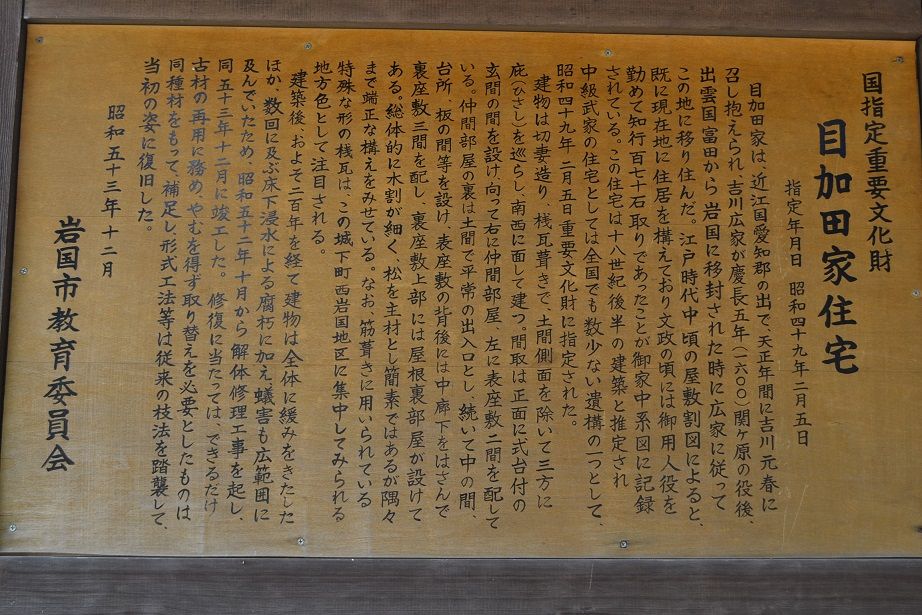 国指定重要文化財
目加田家住宅
指定年月日 昭和四十九年二月五日
目加田家は、近江国愛知郡の出で、天正年間に吉川元春に
召し抱えられ、吉川広家が慶長五年(一六〇〇)関ヶ原の役後、
出雲国富田から岩国に移封された時に広家に従って
この地に移り住んだ。江戸時代中頃の屋敷割図によると、
既に現在地に住居を構えており文政の頃には御用人役を
勤めて知行百七十石取りであったことが御家中系図に記録
されている。この住宅は十八世紀後半の建築と推定され
中級武家の住宅としては全国でも数少ない遺構の一つとして、
昭和四十九年二月五日重要文化財に指定された。
建物は切妻造り、桟瓦葺きで、土間側面を除いて三方に
庇(ひさし)を巡らし、南西に面して建つ。間取は正面に式台付の
玄関の間を設け、向って右に仲間部屋、左に表座敷二間を配して
いる。仲間部屋の裏は土間で平常の出入口とし、続いて中の間、
台所、板の間等を設け、表座敷の背後には中廊下をはさんで
裏座敷三間を配し、裏座敷上部には屋根裏部屋が設けて
ある。総体的に木割が細く、松を主材とし簡素ではあるが隅々
まで端正な構えをみせている。なお、筋葺きに用いられている
特殊な形の桟瓦は、この城下町西岩国地区に集中してみられる
地方色として注目される。
建築後、およそ二百年を経て建物は全体に緩みをきたした
ほか、数回に及ぶ床下浸水による腐朽に加え蟻害も広範囲に
及んでいたため、昭和五十二年十月から解体修理工事を起し、
同五十三年十二月に竣工した。修復に当たっては、できるだけ
古材の再用に務め、やむを得ず取り替えを必要としたものは
同種材をもって、補足し形式工法等は従来の枝法を踏襲して、
当初の姿に復旧した。
昭和五十三年十二月
岩国市教育委員会